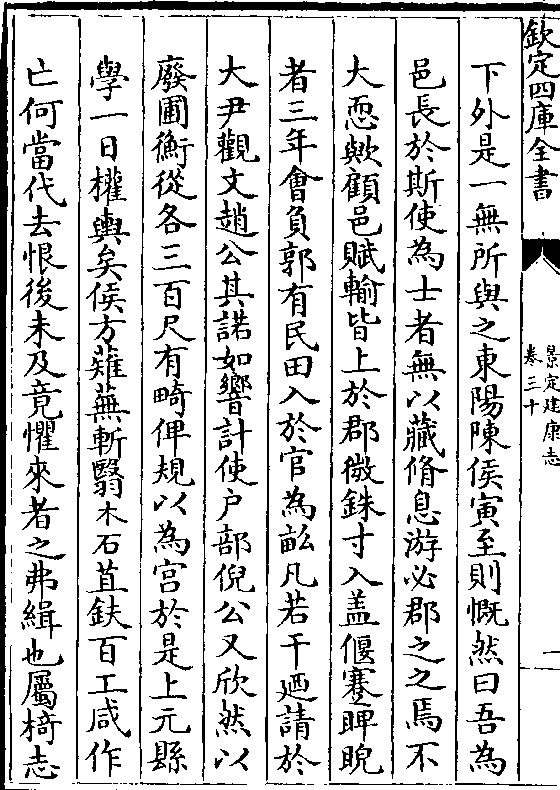 欽定四庫全書
景定建康志
卷三十
一
下外是一無所與之東陽陳侯寅至則慨然曰吾為
邑長於斯使為士者無以藏脩息游必郡之之焉不
大恧歟顧邑賦輸皆上於郡微銖寸入盖偃蹇睥睨
者三年會負郭有民田入於官為畝凡若干廼請於
大尹觀文趙公其諾如響計使户部倪公又欣然以
廢圃衡從各三百尺有畸俾規以為宫於是上元縣
學一日權輿矣侯方薙蕪斬翳木石苴鈇百工咸作
亡何當代去恨後未及竟懼來者之弗緝也屬㮣志